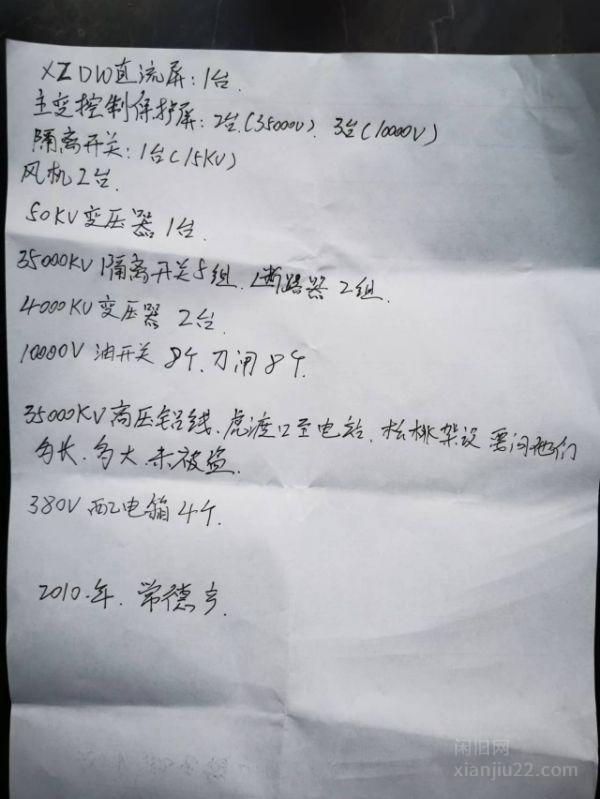 XZDW直流屏：1台.
主变控制保护屏：2台(35000V). 3台(10000V)
隔离开关：1台(15KV)
风机2台.
50KV变压器1台.
35000KV隔离开关5组. 断路器2组.
4000KV变压器 2台.
10000V油开关8个. 刀闸8个.
35000KV高压铝线. 虎渡口至电站. 松桃架设 要问他们
多长. 多大. 未被盗.
380V配电箱4个.
2010年. 常德产.
闲旧网
xianjiu22.com